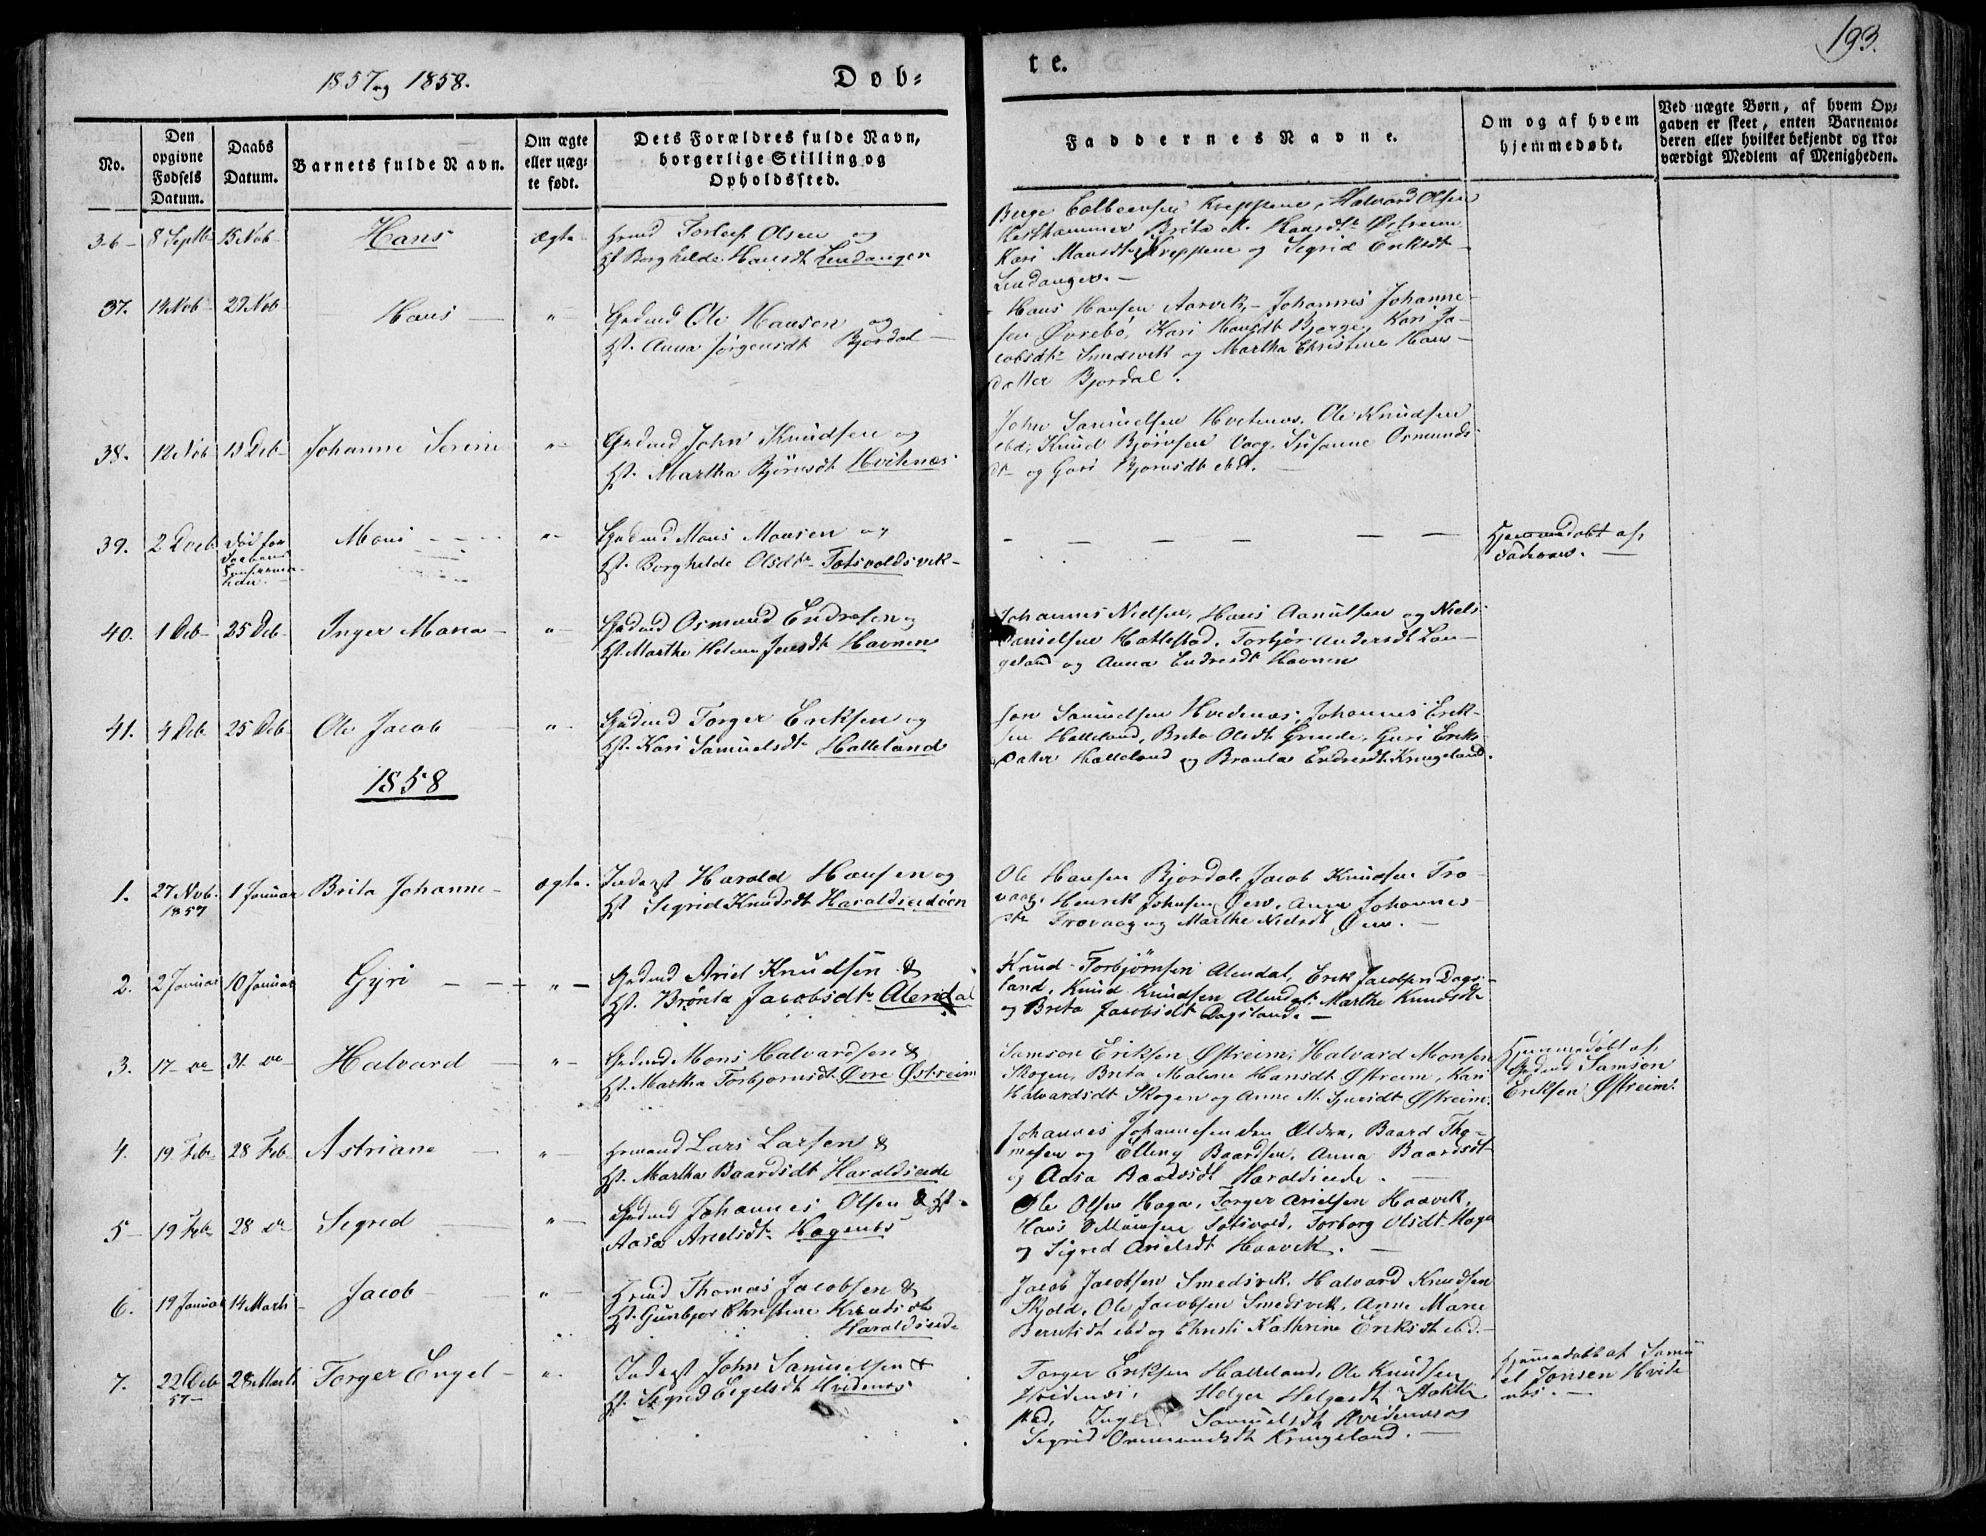 193.
1857 og 1858.
Døb-
te.
No.
Den opgivne Fødsels Datum.
Daabs Datum.
Barnets fulde Navn.
Om ægte eller uægte født.
Dets Forældres fulde Navn, borgerlige Stilling og Opholdssted.
Faddernes Navne.
Om og af hvem hjemmedøbt.
Ved uægte Børn, af hvem Opgaven er skeet, enten Barnemoderen eller hvilket bekjendt og troværdigt Medlem af Menigheden.
36 8 Septb 15 Nob Hans ægte
Torleif Olsen og
Borghilde Hansdt Lindanger
Halvord Olsen
Brita M. Hansdt Østreim
Kari Monsdt Kreppene og Sigrid Eriksdt
Lindanger.
37. 14 Nob 29 Nob Hans "
Gmd Ole Hansen og
Hst. Anna Jørgensdt Bjordal
Hans Hansen Aarvik, Johannes Johanne-
sen Øvrebø, Kari Hansdt Bjerge, Kari Ja-
cobsdt Smedsvik og Martha Christine Hans-
datter Bjordal.
38. 12 Nob 13 Deb Johanne Serine "
Gmd John Knudsen og
Hst. Martha Bjørnsdt Hvitenæs
John Samuelsen Hvitenæs, Ole Knudsen
ebd, Knud Bjørnsen Vaag, Susanne Osmunds-
dt og Guri Bjørnsdt ebd.
39. 2 Deb Død før Daabens Mons "
Gmd Mons Monsen og
Hst. Borghilde Olsdt Totsvoldsvik
Hjemmedøbt af
Faderen.
40. 1 Deb 25 Deb Inger Maria "
Gmd Osmund Endresen og
Hst. Marthe Helene Jensdt Havnen
Johannes Nielsen, Hans Aanulsen og Niels
Danielsen Hattestad, Torbjør Andersdt Lan-
geland og Anna Endresdt Havnen
41. 4 Deb 25 Deb Ole Jacob "
Gmd Torger Eriksen og
Hst. Kari Samuelsdt Halleland
Jon Samuelsen Hvidenæs, Johannes Erik-
sen Halleland, Brita Olsdt Grinde, Guri Eriks-
datter Halleland og Bronla Endresdt Kringeland.
1858
1. 27 Nob. 1857 1 Januar Brita Johanne ægte
Inderst Harald Hansen og
Hst Sigrid Knudsdt Haraldseidøen
Ole Hansen Bjordal, Jacob Knudsen Tro-
vaag, Henrik Johnsen Øen, Anna Johannes-
dt Trovaag og Marthe Nielsdt Øen.
2. 2 Januar 10 Januar Gyri "
Gmd Ariel Knudsen &
Hst. Brønla Jacobsdt Alendal
Knud Torbjørnsen Alendal, Erik Jacobsen Dags-
land, Knud Knudsen Alendal, Marthe Knudsdt
og Brita Jacobsdt Dagsland.
3. 17 do 31 do Halvard "
Gmd Mons Halvardsen &
Hst. Martha Torbjørnsdt Øvre Østreim
Samson Eriksen Østreim, Halvard Monsen
Skogen, Brita Malene Hansdt Østreim, Kari
Halvardsdt Skogen og Anne M. Østreim.
Hjemmedøbt af
Gmd Samson
Eriksen Østreim.
4. 19 Feb 28 Feb Astriane "
Lars Larsen &
Hst. Martha Baardsdt Haraldseide
Johannes Johannesen den Ældre, Baard Tho-
mesen og Elling Baardsen, Anna Baardsdt
og Aasa Baardsdt Haraldseide.
5 19 Feb 28 do Sigrid "
Gmd Johannes Olsen & Hst.
Aasa Arielsdt Hogenæs
Ole Olsen Haga, Torger Arielsen Haavik,
Hans Monsen Totsvold, Torborg Olsdt Haga
og Sigrid Arielsdt Haavik.
6. 19 Januar 14 Marts Jacob "
Thomas Jacobsen &
Hst. Gunbjor Christine Knudsdt
Haraldseide
Jacob Jacobsen Smedsvik, Halvard Knudsen
Skjold, Ole Jacobsen Smedsvik, Anne Marie
Berntsdt ebd og Christi Kathrine Eriksdt ebd.
7. 22 Deb 57 28 Marts Torger Engel "
Inderst John Samuelsen &
Hst. Sigrid Engelsdt Hvidenæs
Torger Eriksen Halleland, Ole Knudsen
Hvidenæs, Helger Helgesdt
Inger Samuelsdt Hvidenæs og
Sigrid Ommundsdt Kringeland.
Hjemmedøbt af Samu-
el Jonsen Hvide-
næs.